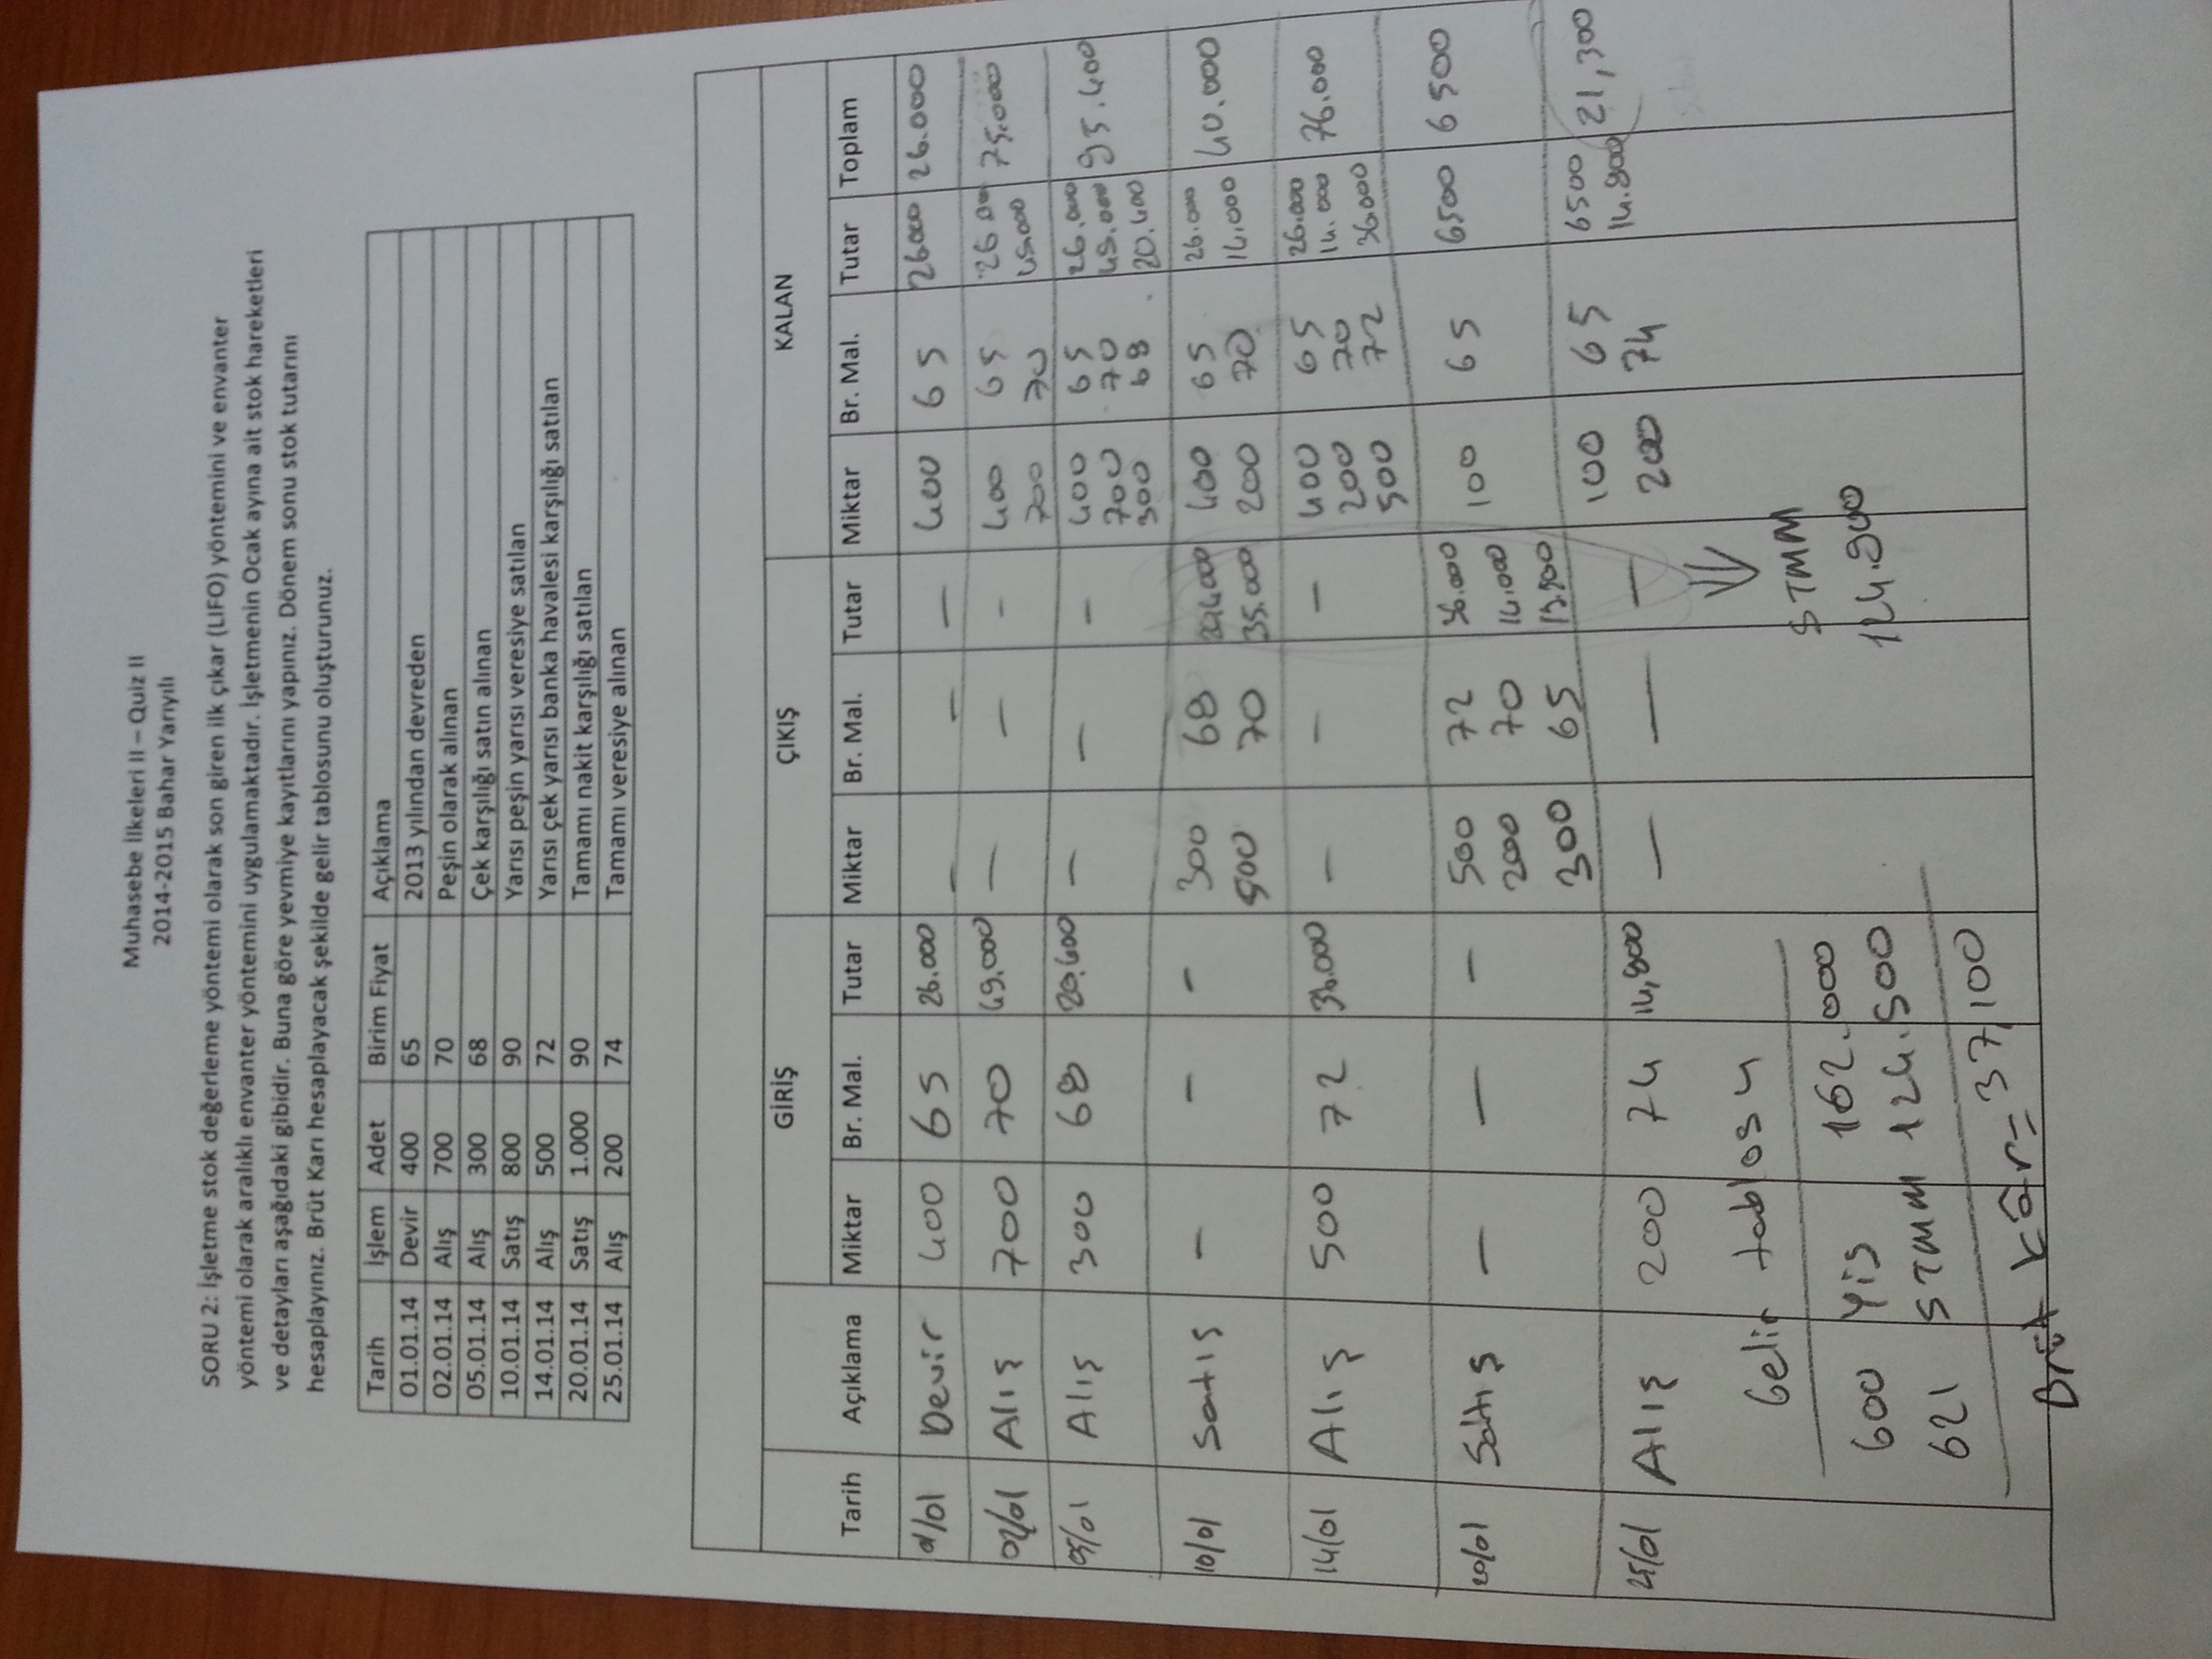 Muhasebe İlkeleri II – Quiz II
2014-2015 Bahar Yarıyılı
SORU 2: İşletme stok değerleme yöntemi olarak son giren ilk çıkar (LIFO) yöntemini ve envanter
yöntemi olarak aralıklı envanter yöntemini uygulamaktadır. İşletmenin Ocak ayına ait stok hareketleri
ve detayları aşağıdaki gibidir. Buna göre yevmiye kayıtlarını yapınız. Dönem sonu stok tutarını
hesaplayınız. Brüt Karı hesaplayacak şekilde gelir tablosunu oluşturunuz.
Tarih İşlem Adet Birim Fiyat Açıklama
01.01.14 Devir 400 65 2013 yılından devreden
02.01.14 Alış 700 70 Peşin olarak alınan
05.01.14 Alış 300 68 Çek karşılığı satın alınan
10.01.14 Satış 800 90 Yarısı peşin yarısı veresiye satılan
14.01.14 Alış 500 72 Yarısı çek yarısı banka havalesi karşılığı satılan
20.01.14 Satış 1.000 90 Tamamı nakit karşılığı satılan
25.01.14 Alış 200 74 Tamamı veresiye alınan
GİRİŞ ÇIKIŞ KALAN
Tarih Açıklama Miktar Br. Mal. Tutar Miktar Br. Mal. Tutar Miktar Br. Mal. Tutar Toplam
01/01 Devir 400 65 26.000 — — — 400 65 26000 26.000
02/01 Alış 700 70 49.000 — — - 400 65 26.000 75.000
700 70 49.000
05/01 Alış 300 68 20.400 — — - 400 65 26.000 95.400
700 70 49.000
300 68 20.400
10/01 Satış - - - 300 68 400 65 26.000 40.000
500 70 35.000 200 70 14.000
14/01 Alış 500 72 36.000 — — — 400 65 26.000 76.000
200 70 14.000
500 72 36.000
20/01 Satış — — — 500 72 36.000 100 65 6500 6500
200 70 14.000
300 65 19.500
25/01 Alış 200 74 14,800 — — — 100 65 6500 21,300
200 74 14.800
Gelir tablosu
600 YİS 162.000
621 STMM 124.900
Brüt kâr= 37,100
STMM
124.900